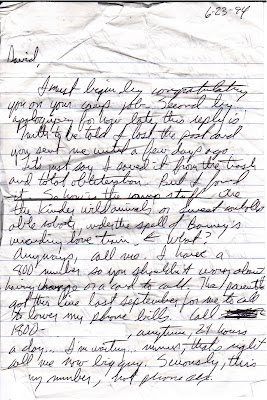 6-23-94
David,
I must begin by congratulating
you on your camp job. Second by
apologizing for how late this reply is.
Truth to be told I lost the postcard
you sent me until a few days ago.
Let's just say I saved it from the trash
and total obliteration. But I found
it. So you're the camp stuff. Are
the kindly wild animals or sweat
robots under the spell of Bowie's
love train? ← What?
Anyways, call me. I have a
800 number so you shouldn't worry about
having change or a card to call. The parents
got this line last September for me to call
to lower my phone bills. Call
1800- , anytime, 24 hours
a day... I'm waiting... that's right
call me now big guy. Seriously, this is
my number, not phone sex.